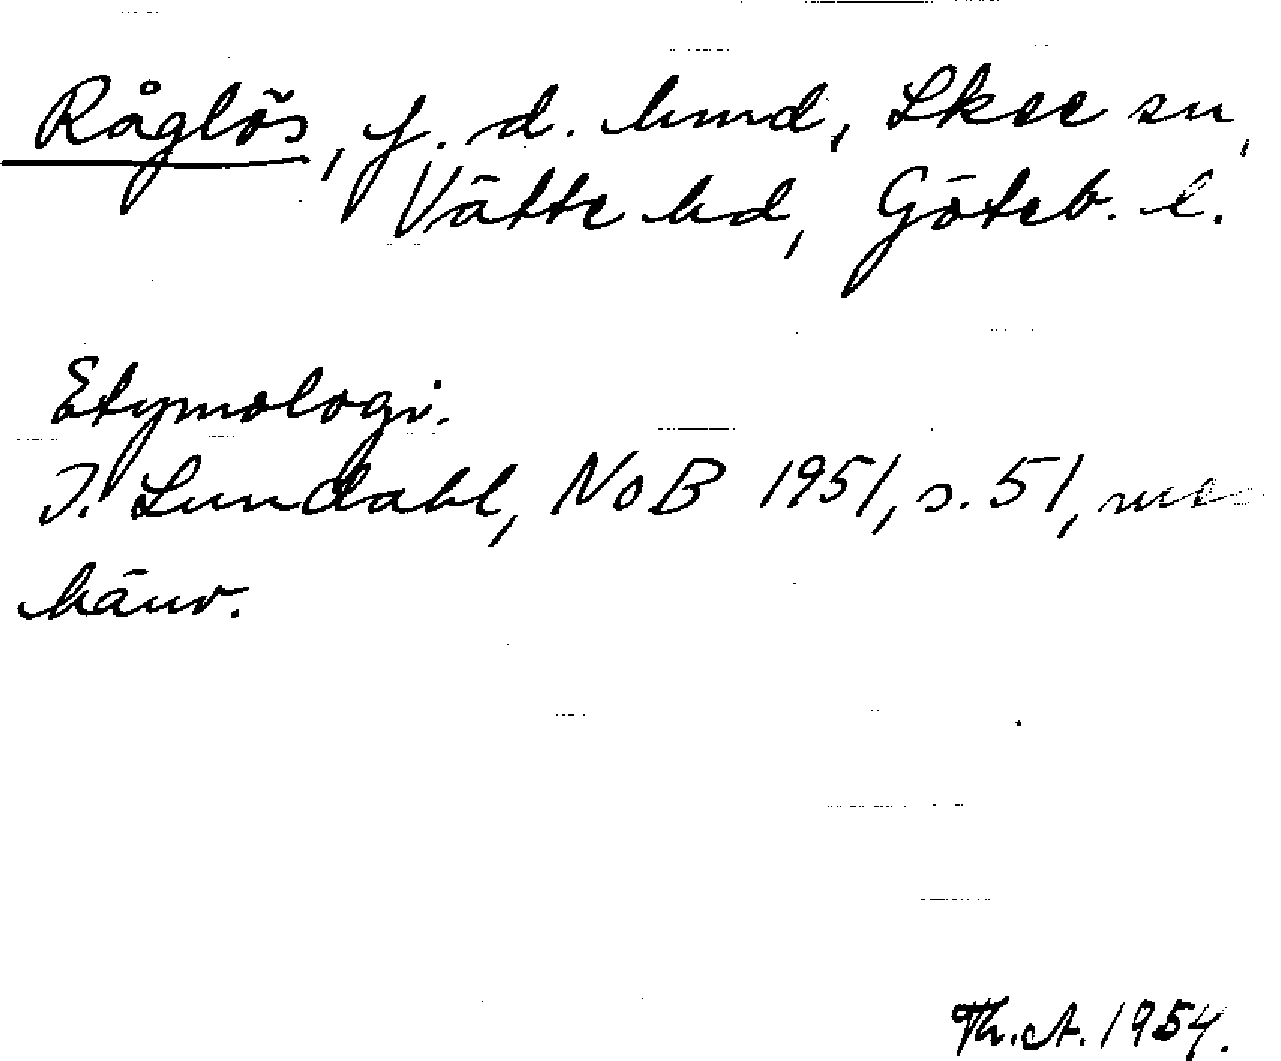 Råglös, f. d. hmd, Skee sn,
Vätte hd, Göteb. l.
Etymologi.
I. Lundahl, NoB 1951, s. 51, med
hänv.
Th. A. 1954.